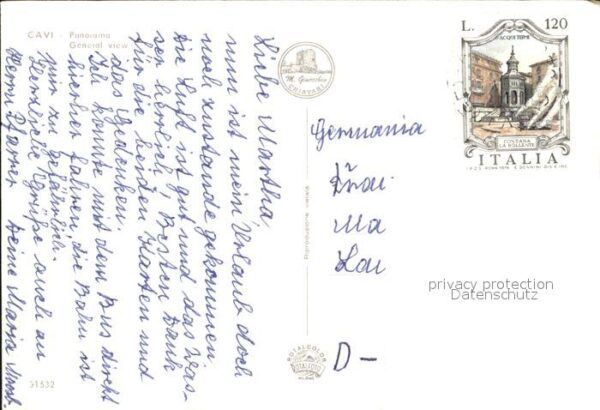 CAVI - Panorama
General view
Liebe Martha,
nun ist mein Urlaub doch
noch zustande gekommen.
Die Luft ist gut und das Was-
ser herrlich! Besten Dank
für die beiden Karten und
das Gedenken.
Ich konnte mit dem Bus direkt
hierher fahren, die Bahn ist
mir zu gefährlich.
Herzliche Grüße auch an
Herrn Pfarrer Deine Maria
51532
M. Ginocchio
CHIAVARI
Riproduzione vietata
ROTALCOLOR
ROTALFOTO
MILANO
L. 120
ACQUI TERME
FONTANA
LA BOLLENTE
ITALIA
Germania
D-
privacy protection
Datenschutz